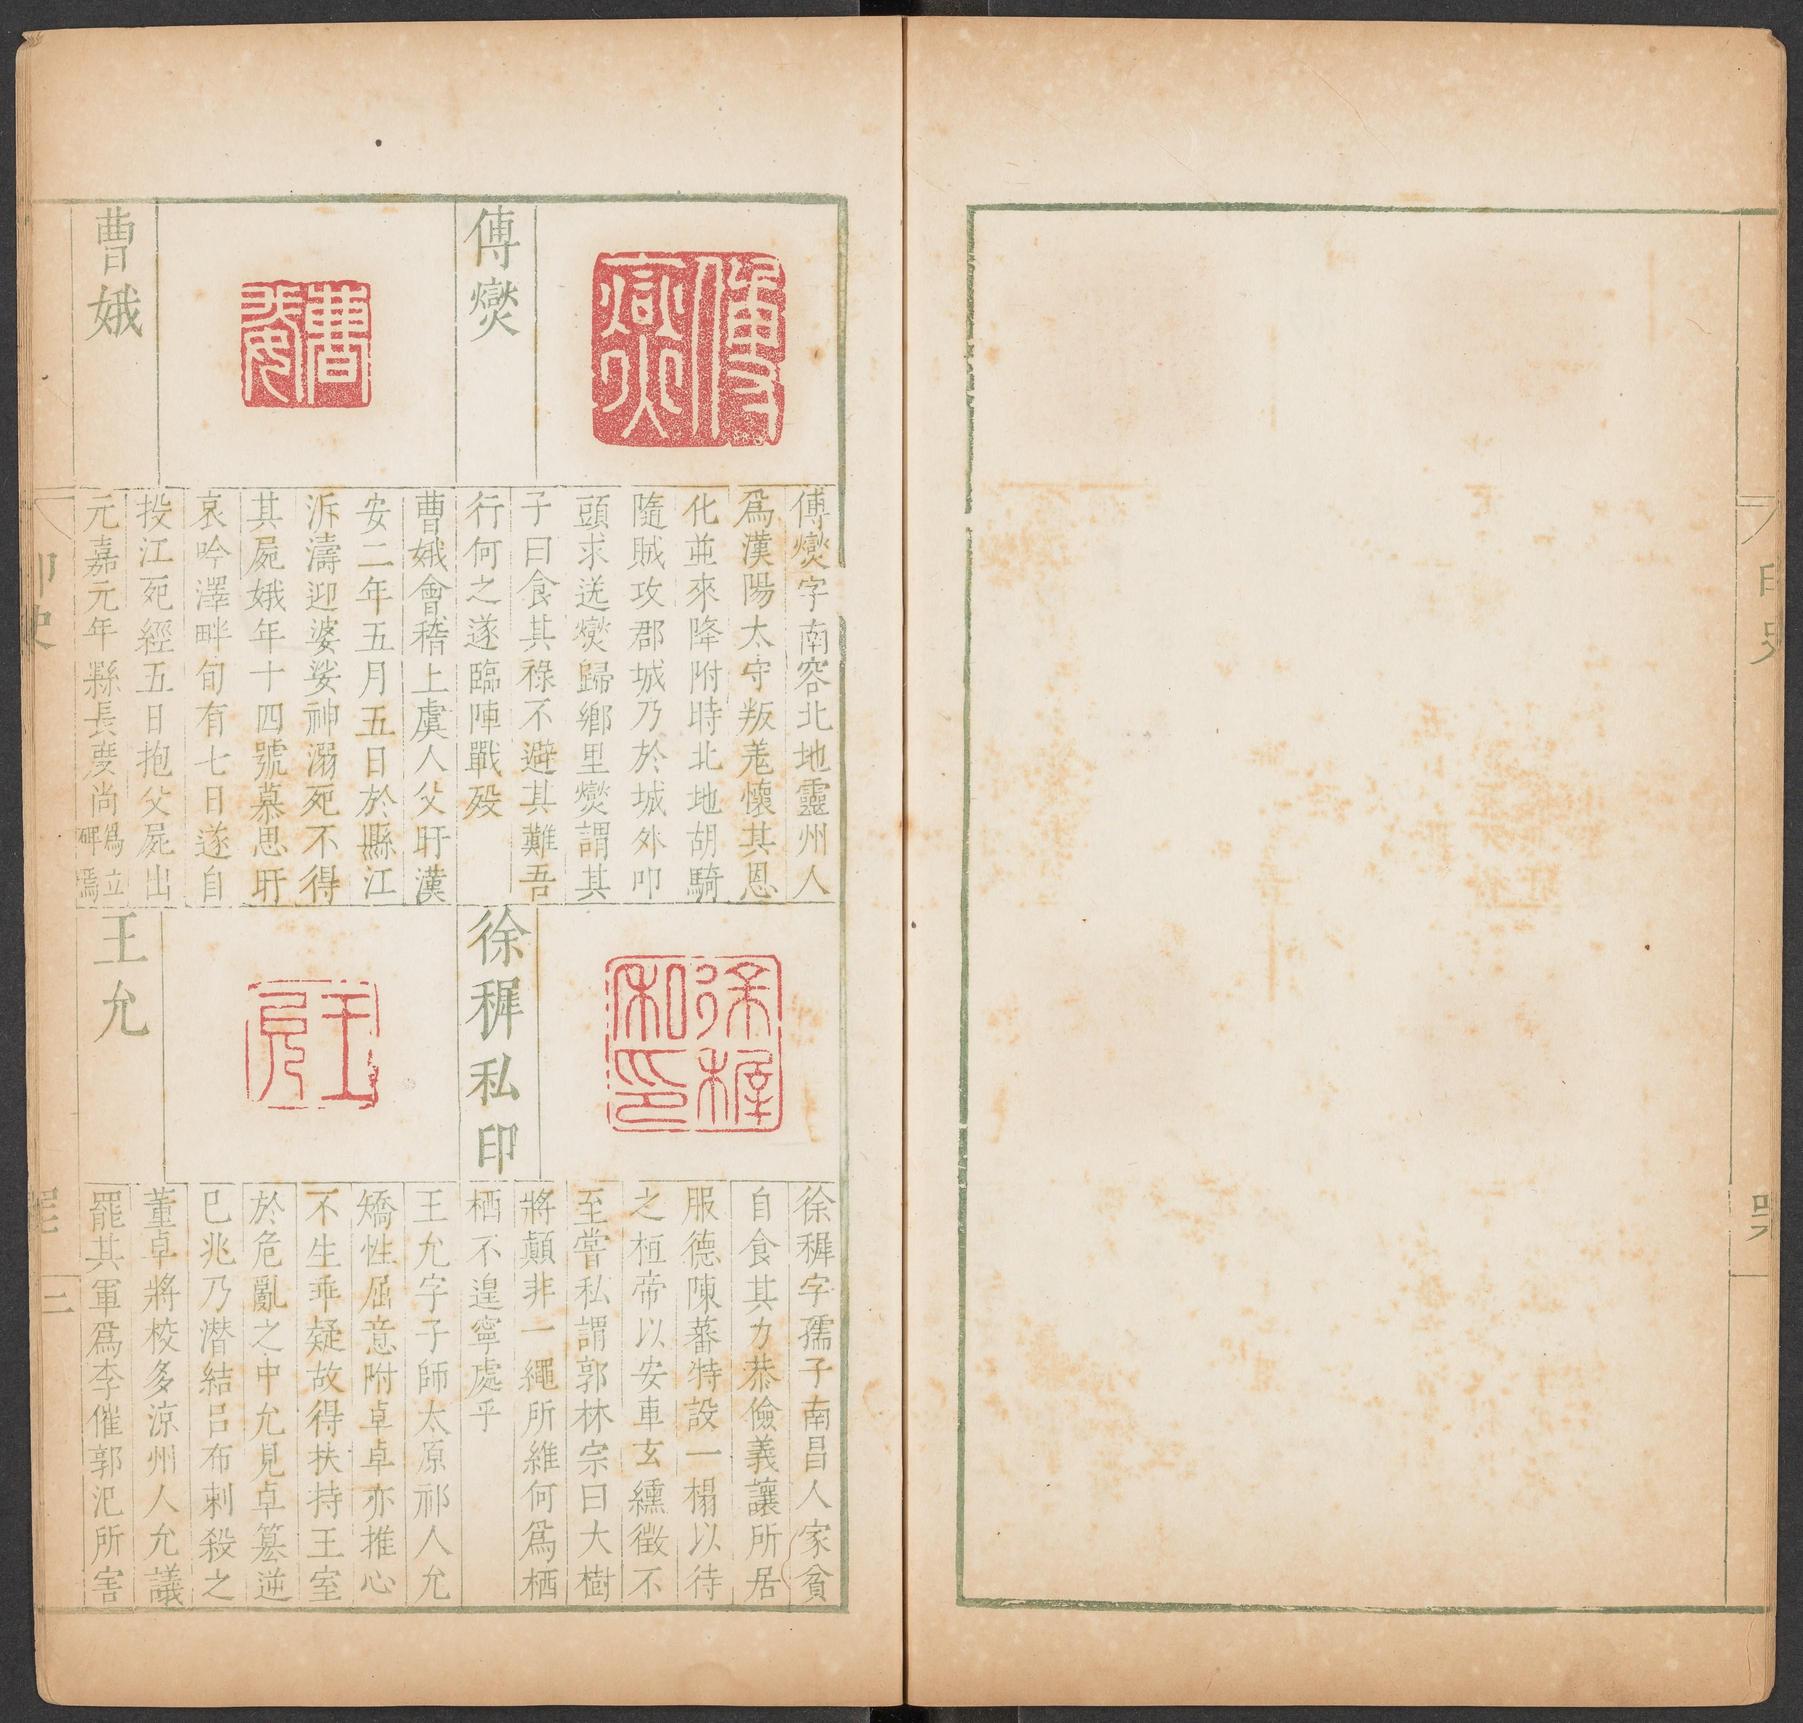 傅燮
傅燮字南容北地靈州人
爲漢陽太守叛羗懷其恩
化並來降附時北地胡騎
隨賊攻郡城乃於城外叩
頭求送燮歸鄉里燮謂其
子曰食其祿不避其難吾
行何之遂臨陣戰殁
曹娥
曹娥會稽上虞人父盱漢
安二年五月五日於縣江
泝濤迎婆娑神溺死不得
其屍娥年十四號慕思盱
哀吟澤畔旬有七日遂自
投江死經五日抱父屍出
元嘉元年縣長度尚爲立碑焉
徐穉私印
徐穉私印
徐穉字孺子南昌人家貧
自食其力恭儉義讓所居
服德陳蕃特設一榻以待
之桓帝以安車玄纁徵不
至嘗私謂郭林宗曰大樹
將顛非一繩所維何爲栖
栖不遑寧處乎
王允
王允
王允字子師太原祁人允
矯性屈意附卓卓亦推心
不生乖疑故得扶持王室
於危亂之中允見卓簒逆
已兆乃潛結呂布刺殺之
董卓將校多涼州人允議
罷其軍爲李傕郭汜所害
印史
三